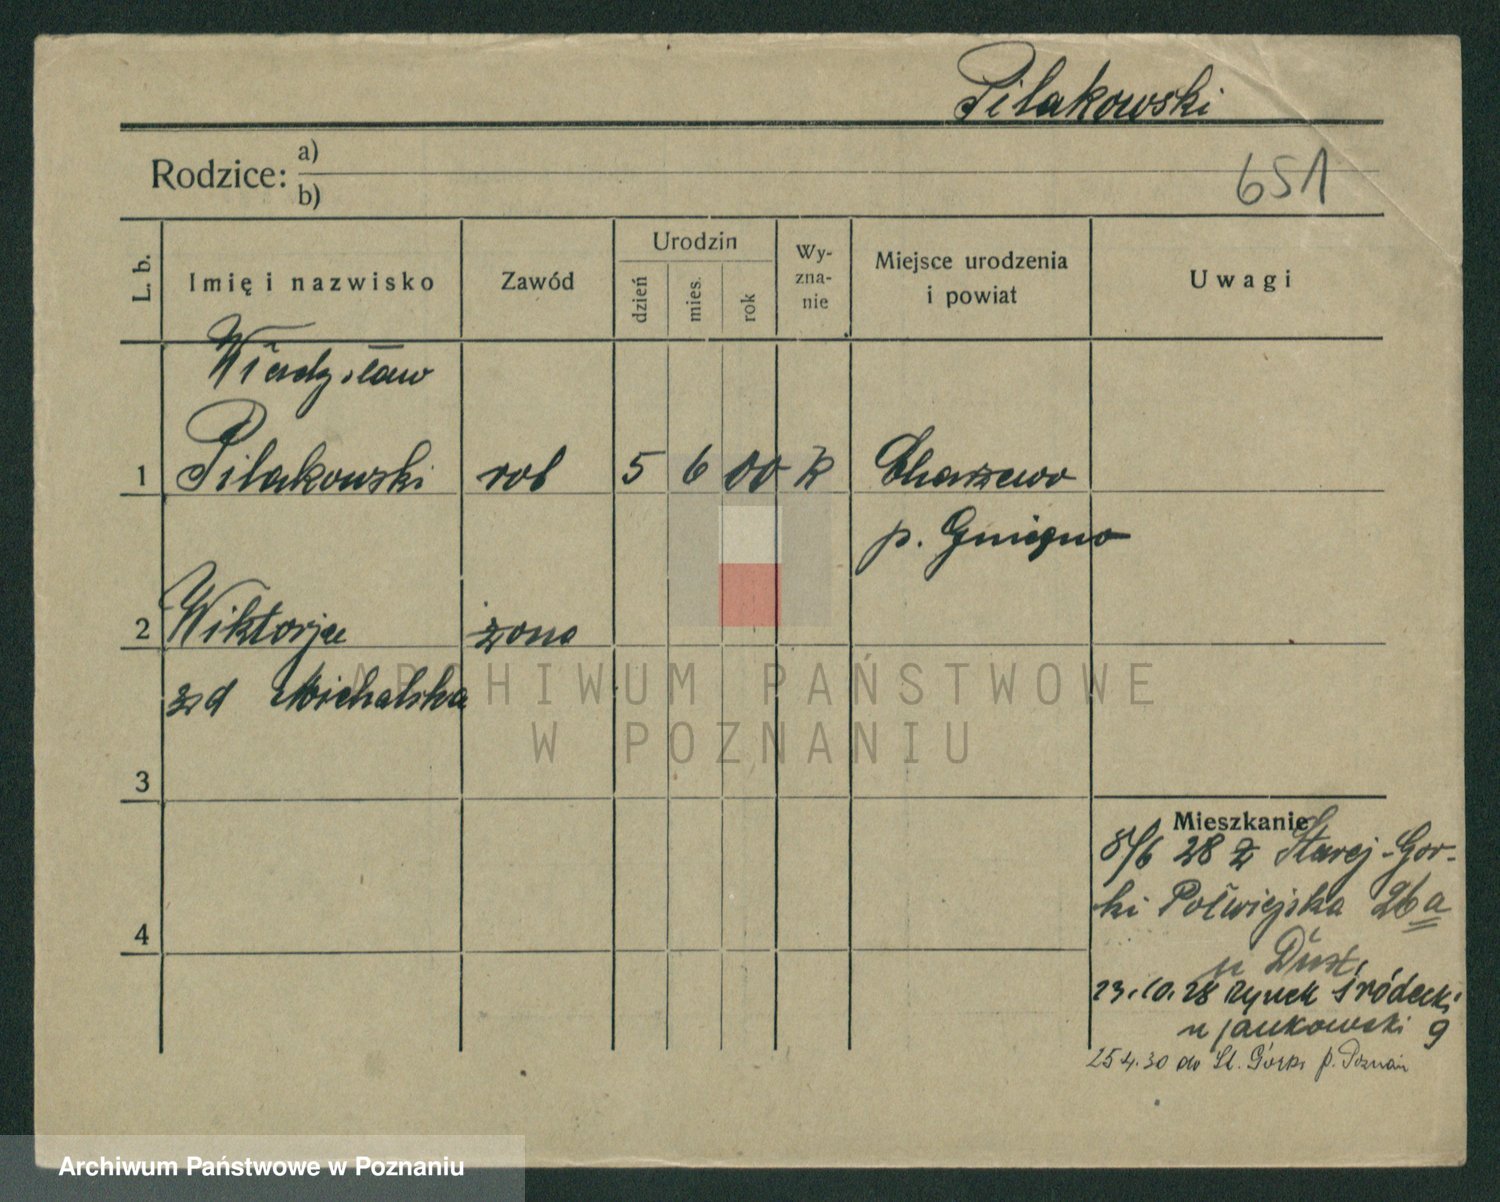 Pilakowski
Rodzice: a)
b)
651
L. b.
Imię i nazwisko
Zawód
Urodzin
dzień
mies.
rok
Wy-
zna-
nie
Miejsce urodzenia
i powiat
Uwagi
Władysław
1 Pilakowski rob 5 6 00 k Charzewo
p. Gniezno
2 Wiktorja żona
z d Michalska
ARCHIWUM PAŃSTWOWE
W POZNANIU
3
Mieszkanie
8/6 28 z Starej-Gor-
ki Półwiejska 26a
u
4
23.10.28 Rynek Śródecki
u Jankowski 9
25 4.30 do St. Górki p. Poznań
Archiwum Państwowe w Poznaniu